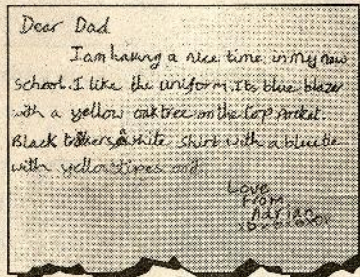 Dear Dad
I am having a nice time in my new
school. I like the uniform. Its blue blazer
with a yellow oak tree on the top pocket.
Black a white shirt with a blue tie
with yellow stripes on it.
Love
From
Adrian
xoxoxoxox